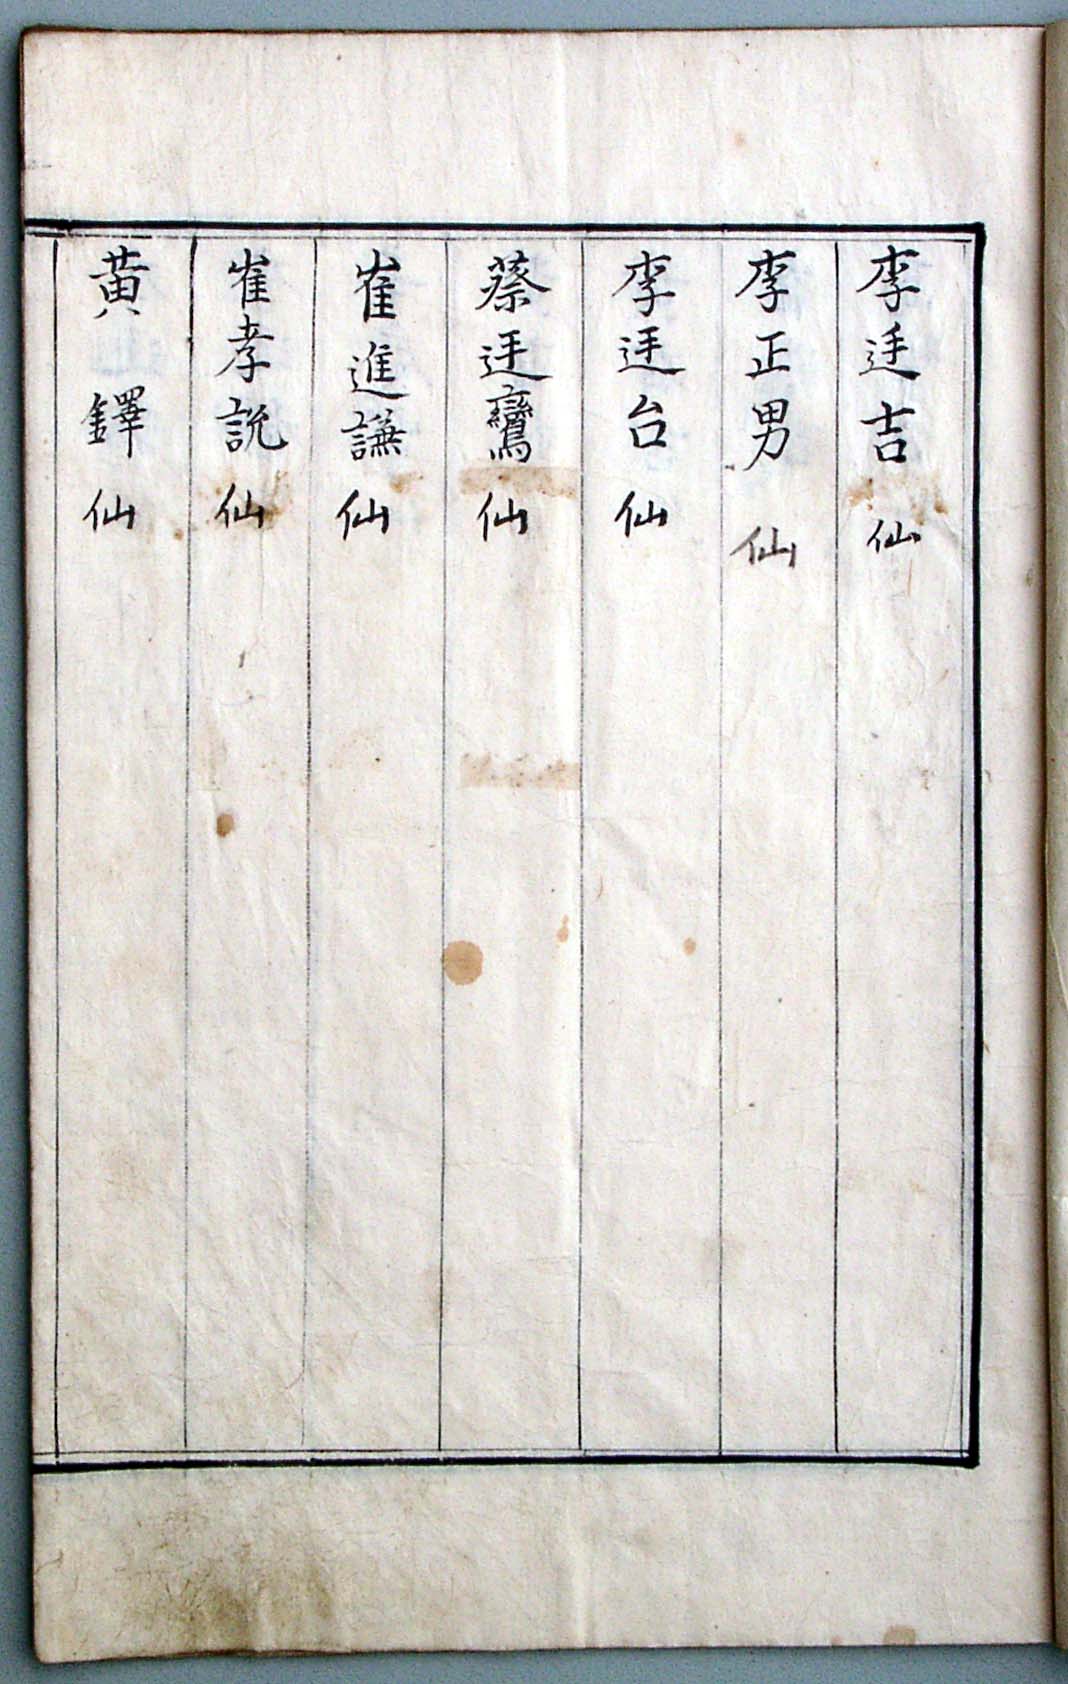 李廷吉仙
李正男仙
李廷台仙
蔡廷鸞仙
崔進謙仙
崔孝説仙
黄鐸仙